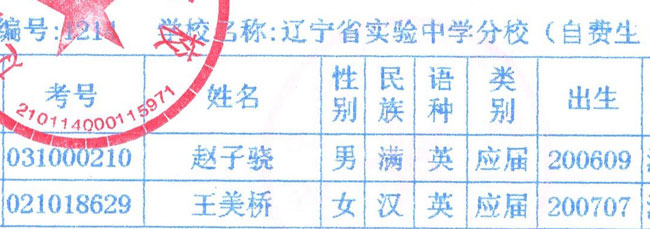 编号:1214 学校名称:辽宁省实验中学分校（自费生
考号 姓名 性别 民族 语种 类别 出生
2101140000115971
031000210 赵子骁 男 满 英 应届 200609
021018629 王美桥 女 汉 英 应届 200707